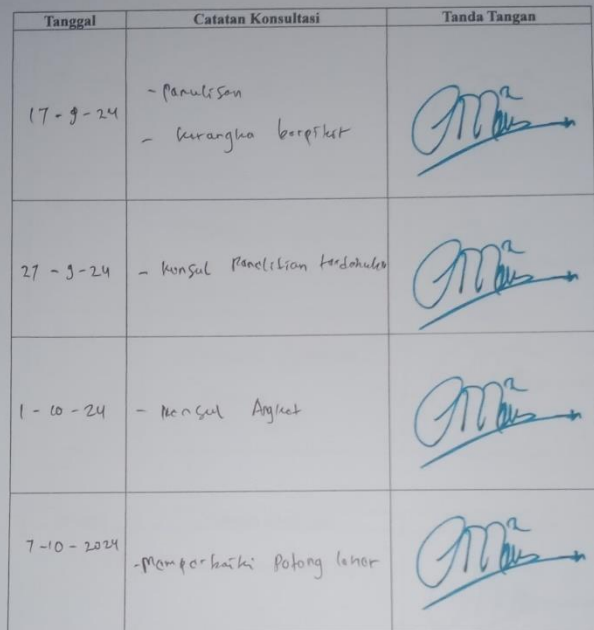 Tanggal Catatan Konsultasi Tanda Tangan
17-9-24 - Panulisan
- kerangka berpikir
27-9-24 - Konsul Panelitian terdahulu
1-10-24 - Konsul Angket
7-10-2024 - Memperbaiki Potong